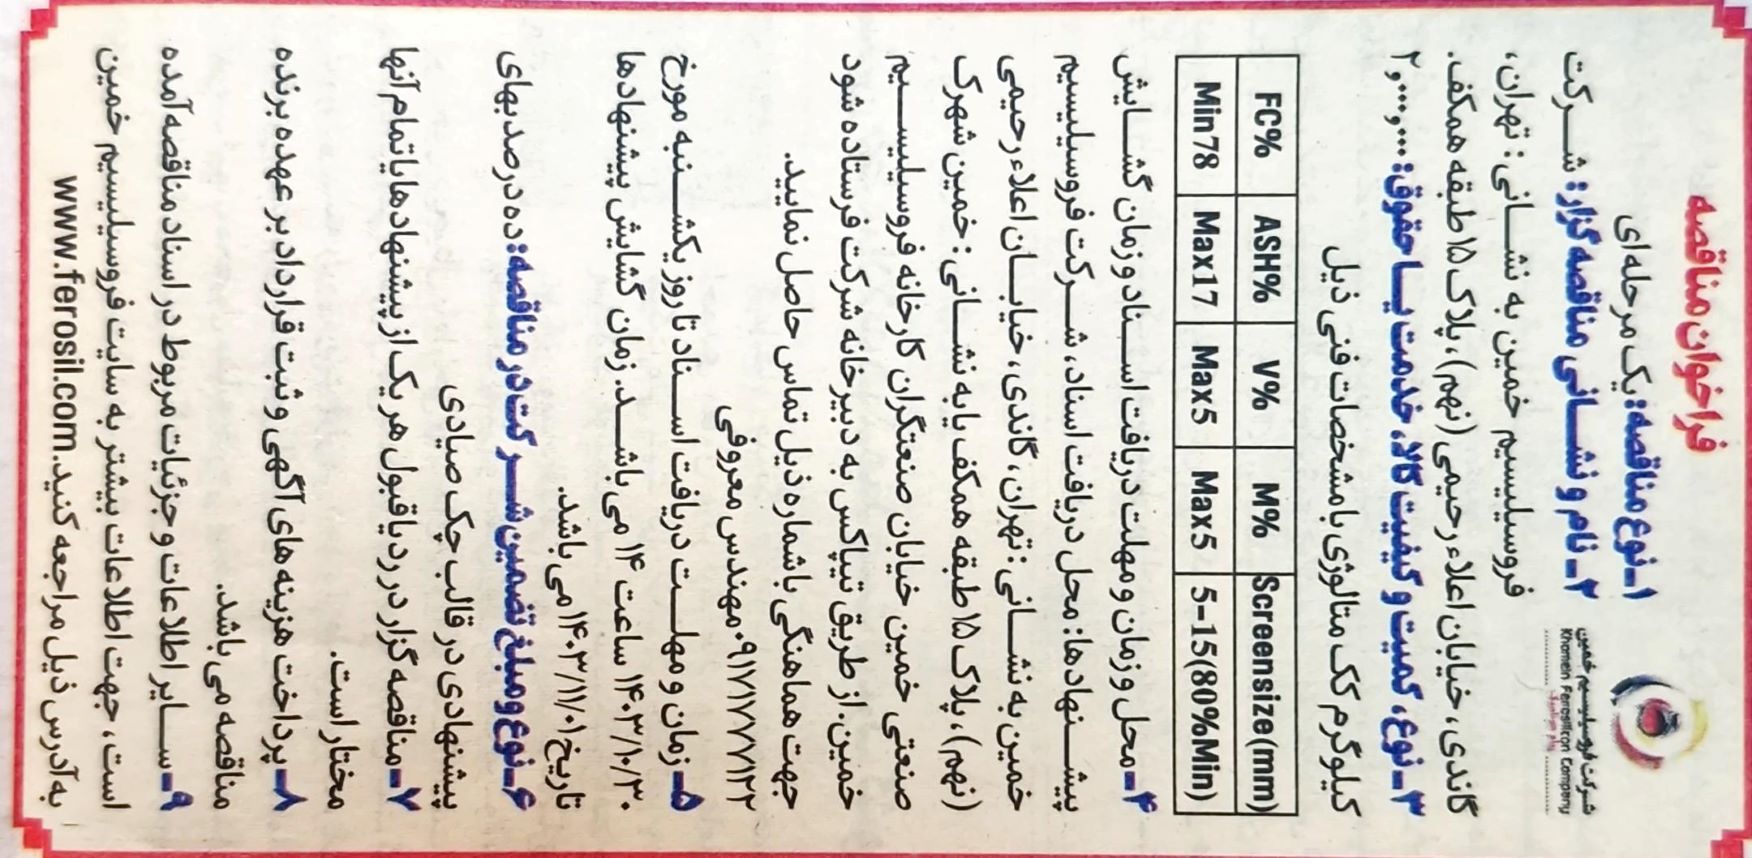 فراخوان مناقصه
شرکت فروسیلیسیم خمین
Khomein Ferosilicon Company
۱ـ نوع مناقصه: یک مرحله‌ای
۲ـ نام و نشانی مناقصه گزار: شرکت
فروسیلیسیم خمین به نشانی: تهران،
گاندی، خیابان اعلاء رحیمی (نهم)، پلاک ۱۵ طبقه همکف.
۳ـ نوع، کمیت و کیفیت کالا، خدمت یا حقوق: ۲,۰۰۰,۰۰۰
کیلوگرم کک متالوژی با مشخصات فنی ذیل
FC% ASH% V% M% Screensize(mm)
Min78 Max17 Max5 Max5 5-15(80%Min)
۴ـ محل و زمان و مهلت دریافت اسناد و زمان گشایش
پیشنهادها: محل دریافت اسناد، شرکت فروسیلیسیم
خمین به نشانی: تهران، گاندی، خیابان اعلاء رحیمی
(نهم)، پلاک ۱۵ طبقه همکف یا به نشانی: خمین شهرک
صنعتی خمین خیابان صنعتگران کارخانه فروسیلیسیم
خمین. از طریق تیپاکس به دبیرخانه شرکت فرستاده شود
جهت هماهنگی با شماره ذیل تماس حاصل نمایید.
۰۹۱۲۱۷۷۷۷۱۳۲ مهندس معروفی
۵ـ زمان و مهلت دریافت اسناد تا روز یکشنبه مورخ
۱۴۰۳/۱۰/۳۰ ساعت ۱۴ می باشد. زمان گشایش پیشنهادها
تاریخ ۱۴۰۳/۱۱/۰۱ می باشد.
۶ـ نوع و مبلغ تضمین شرکت در مناقصه: ده درصد بهای
پیشنهادی در قالب چک صیادی
۷ـ مناقصه گزار در رد یا قبول هر یک از پیشنهادها یا تمام آنها
مختار است.
۸ـ پرداخت هزینه های آگهی و ثبت قرارداد بر عهده برنده
مناقصه می باشد.
۹ـ سایر اطلاعات و جزئیات مربوط در اسناد مناقصه آمده
است، جهت اطلاعات بیشتر به سایت فروسیلیسیم خمین
به آدرس ذیل مراجعه کنید. www.ferosil.com